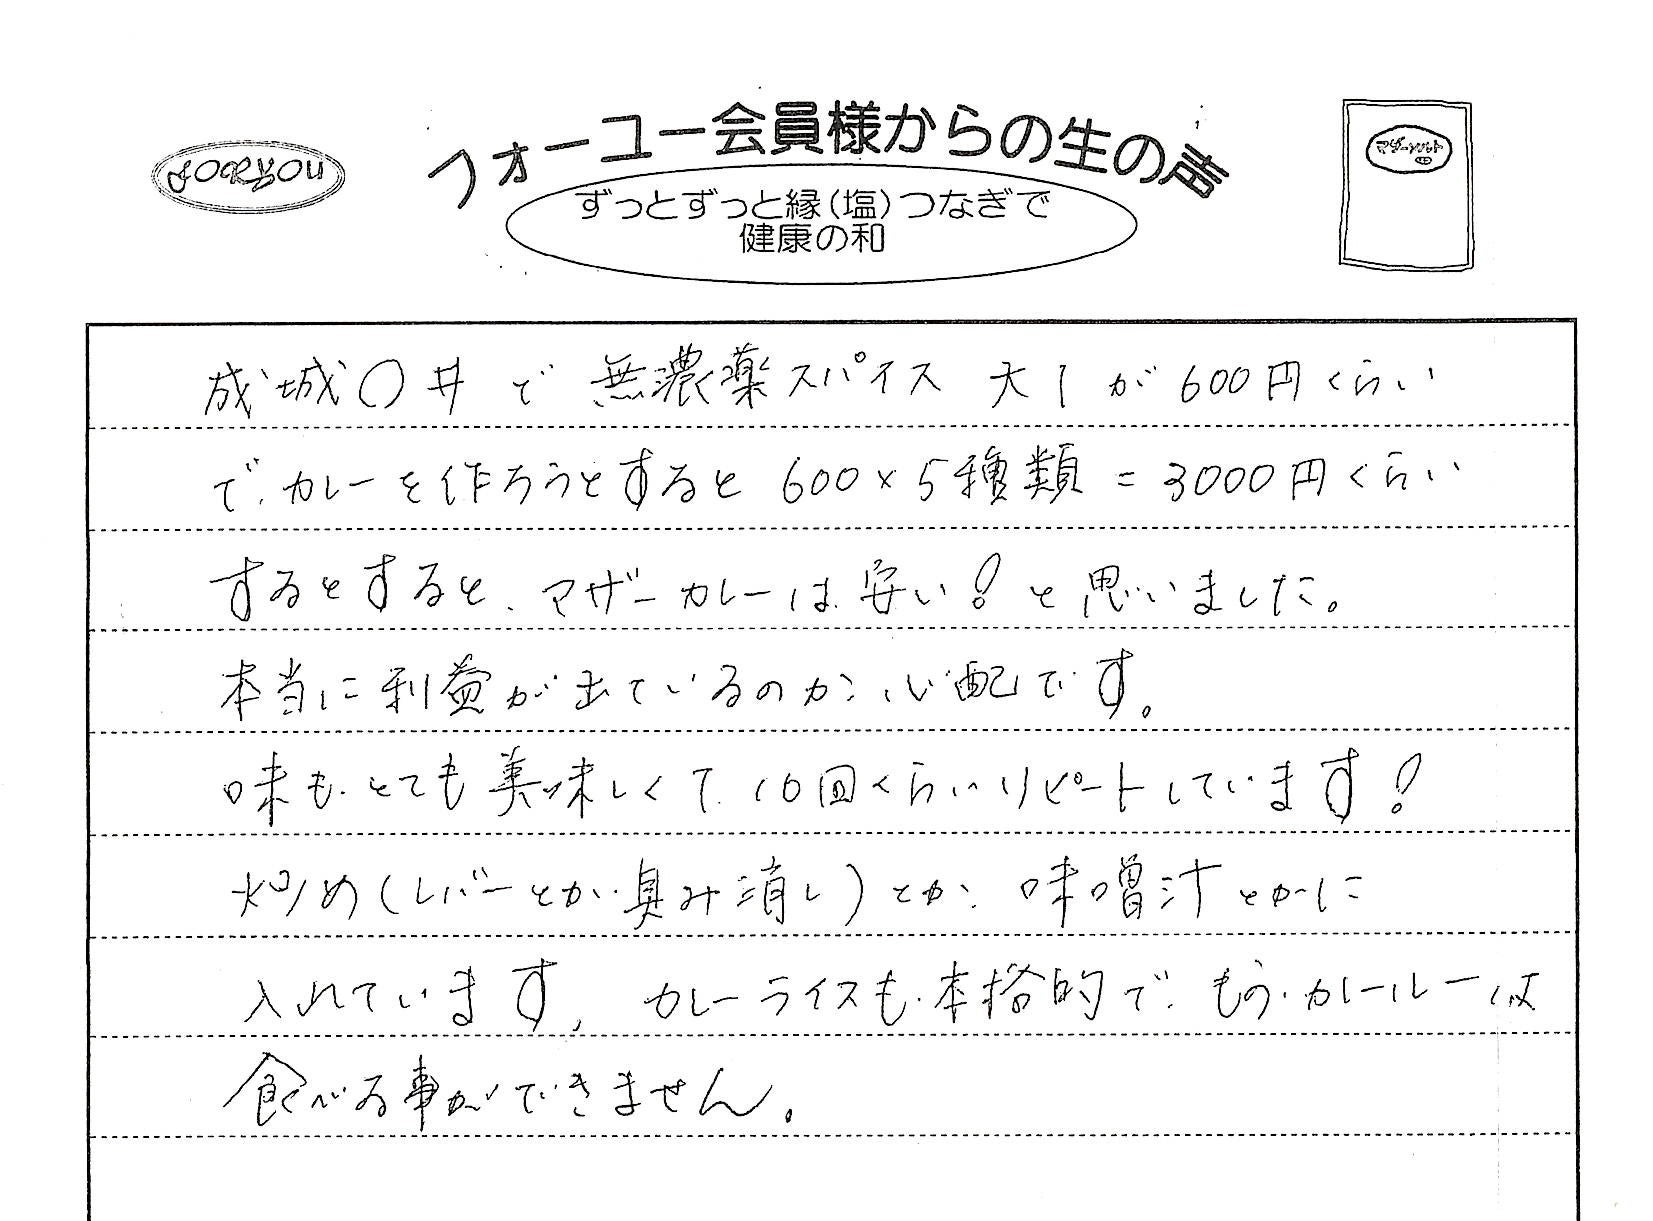 FORYOU
フォーユー会員様からの生の声
マザーソルト
ずっとずっと縁(塩)つなぎで
健康の和
成城〇井で無濃薬スパイス 大1が600円くらい
で、カレーを作ろうとすると 600×5種類=3000円くらい
するとすると、マザーカレーは安い!と思いました。
本当に利益が出ているのか心配です。
味もとても美味しくて、10回くらいリピートしています!
炒め(レバーとか臭み消し)とか、味噌汁とかに
入れています。カレーライスも本格的で、もうカレールーは
食べる事ができません。